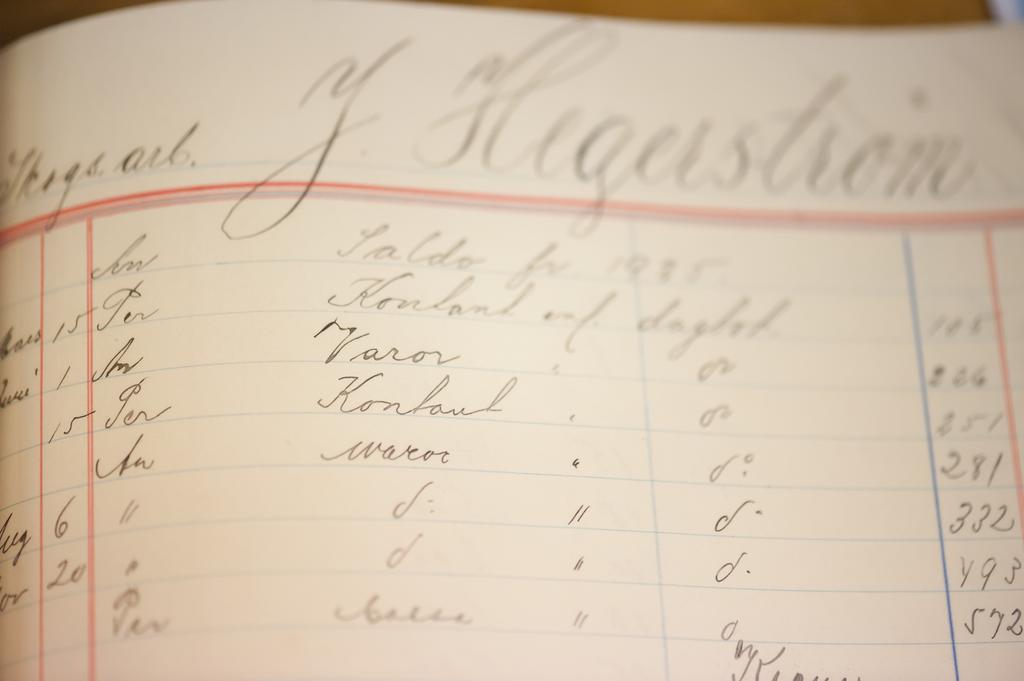 Skogs. arb. J. Hegerström
An Saldo fr 1935.
15 Per Kontant enl. dagbok. 105
1 An Varor " do 226
15 Per Kontant " do 251
An Waror " do 281
Aug 6 " do " do 332
20 " do " do 493
Per " do 572